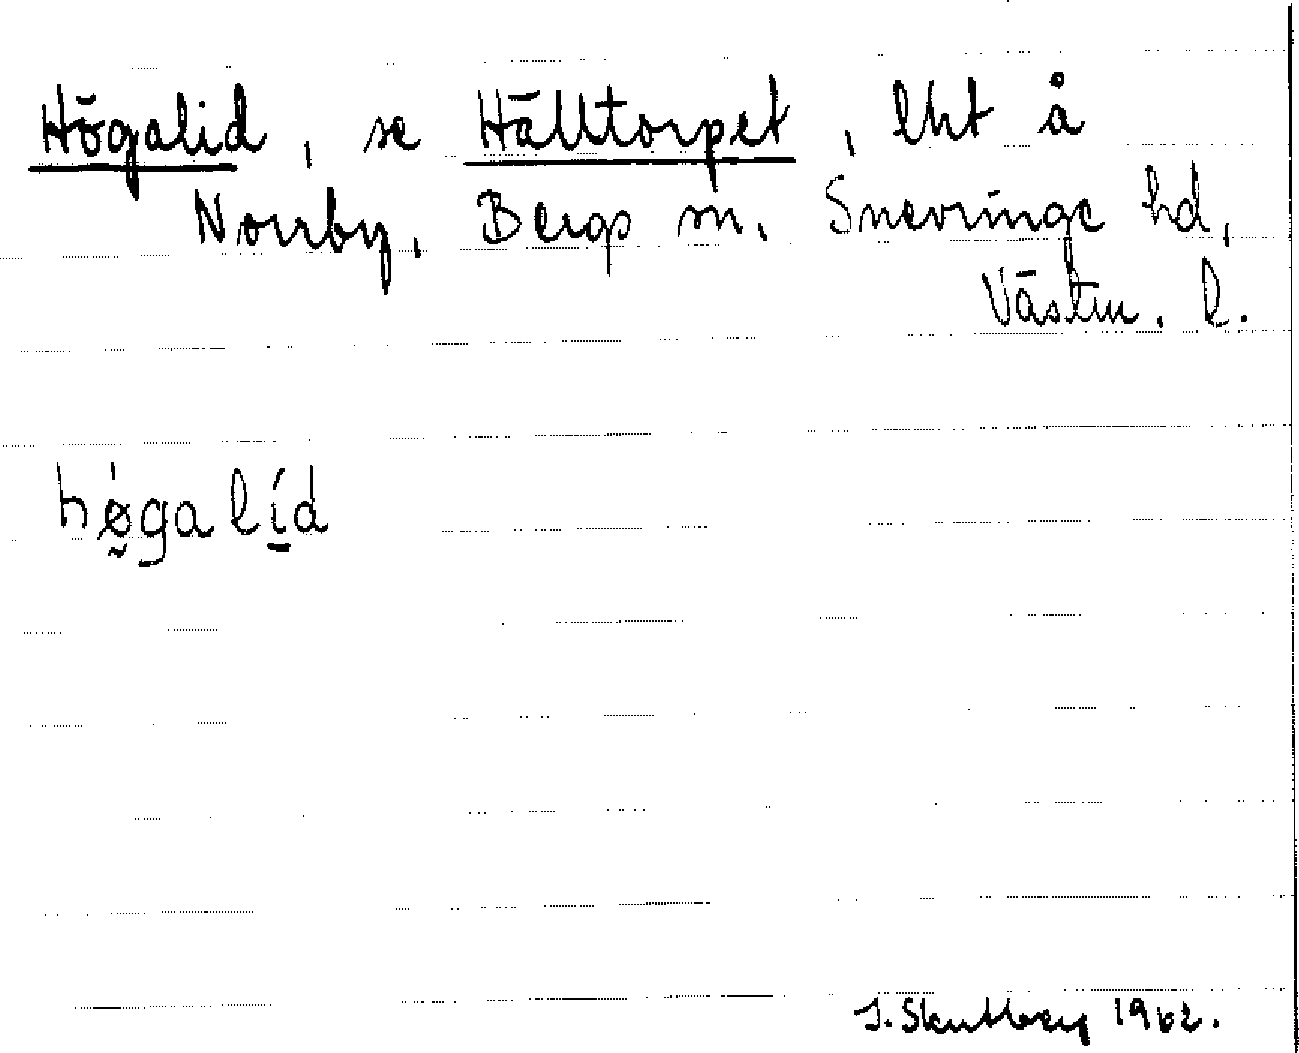 Högalid, se Hälltorpet, lht å
Norrby, Bergs sn. Snevringe hd,
Västm. l.
hǿ̰galíd
J. Skutberg 1962.